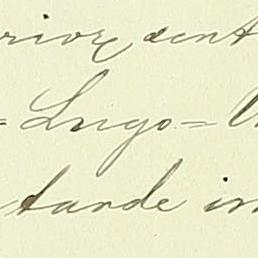 rior sent
= Lugo =
tarde in